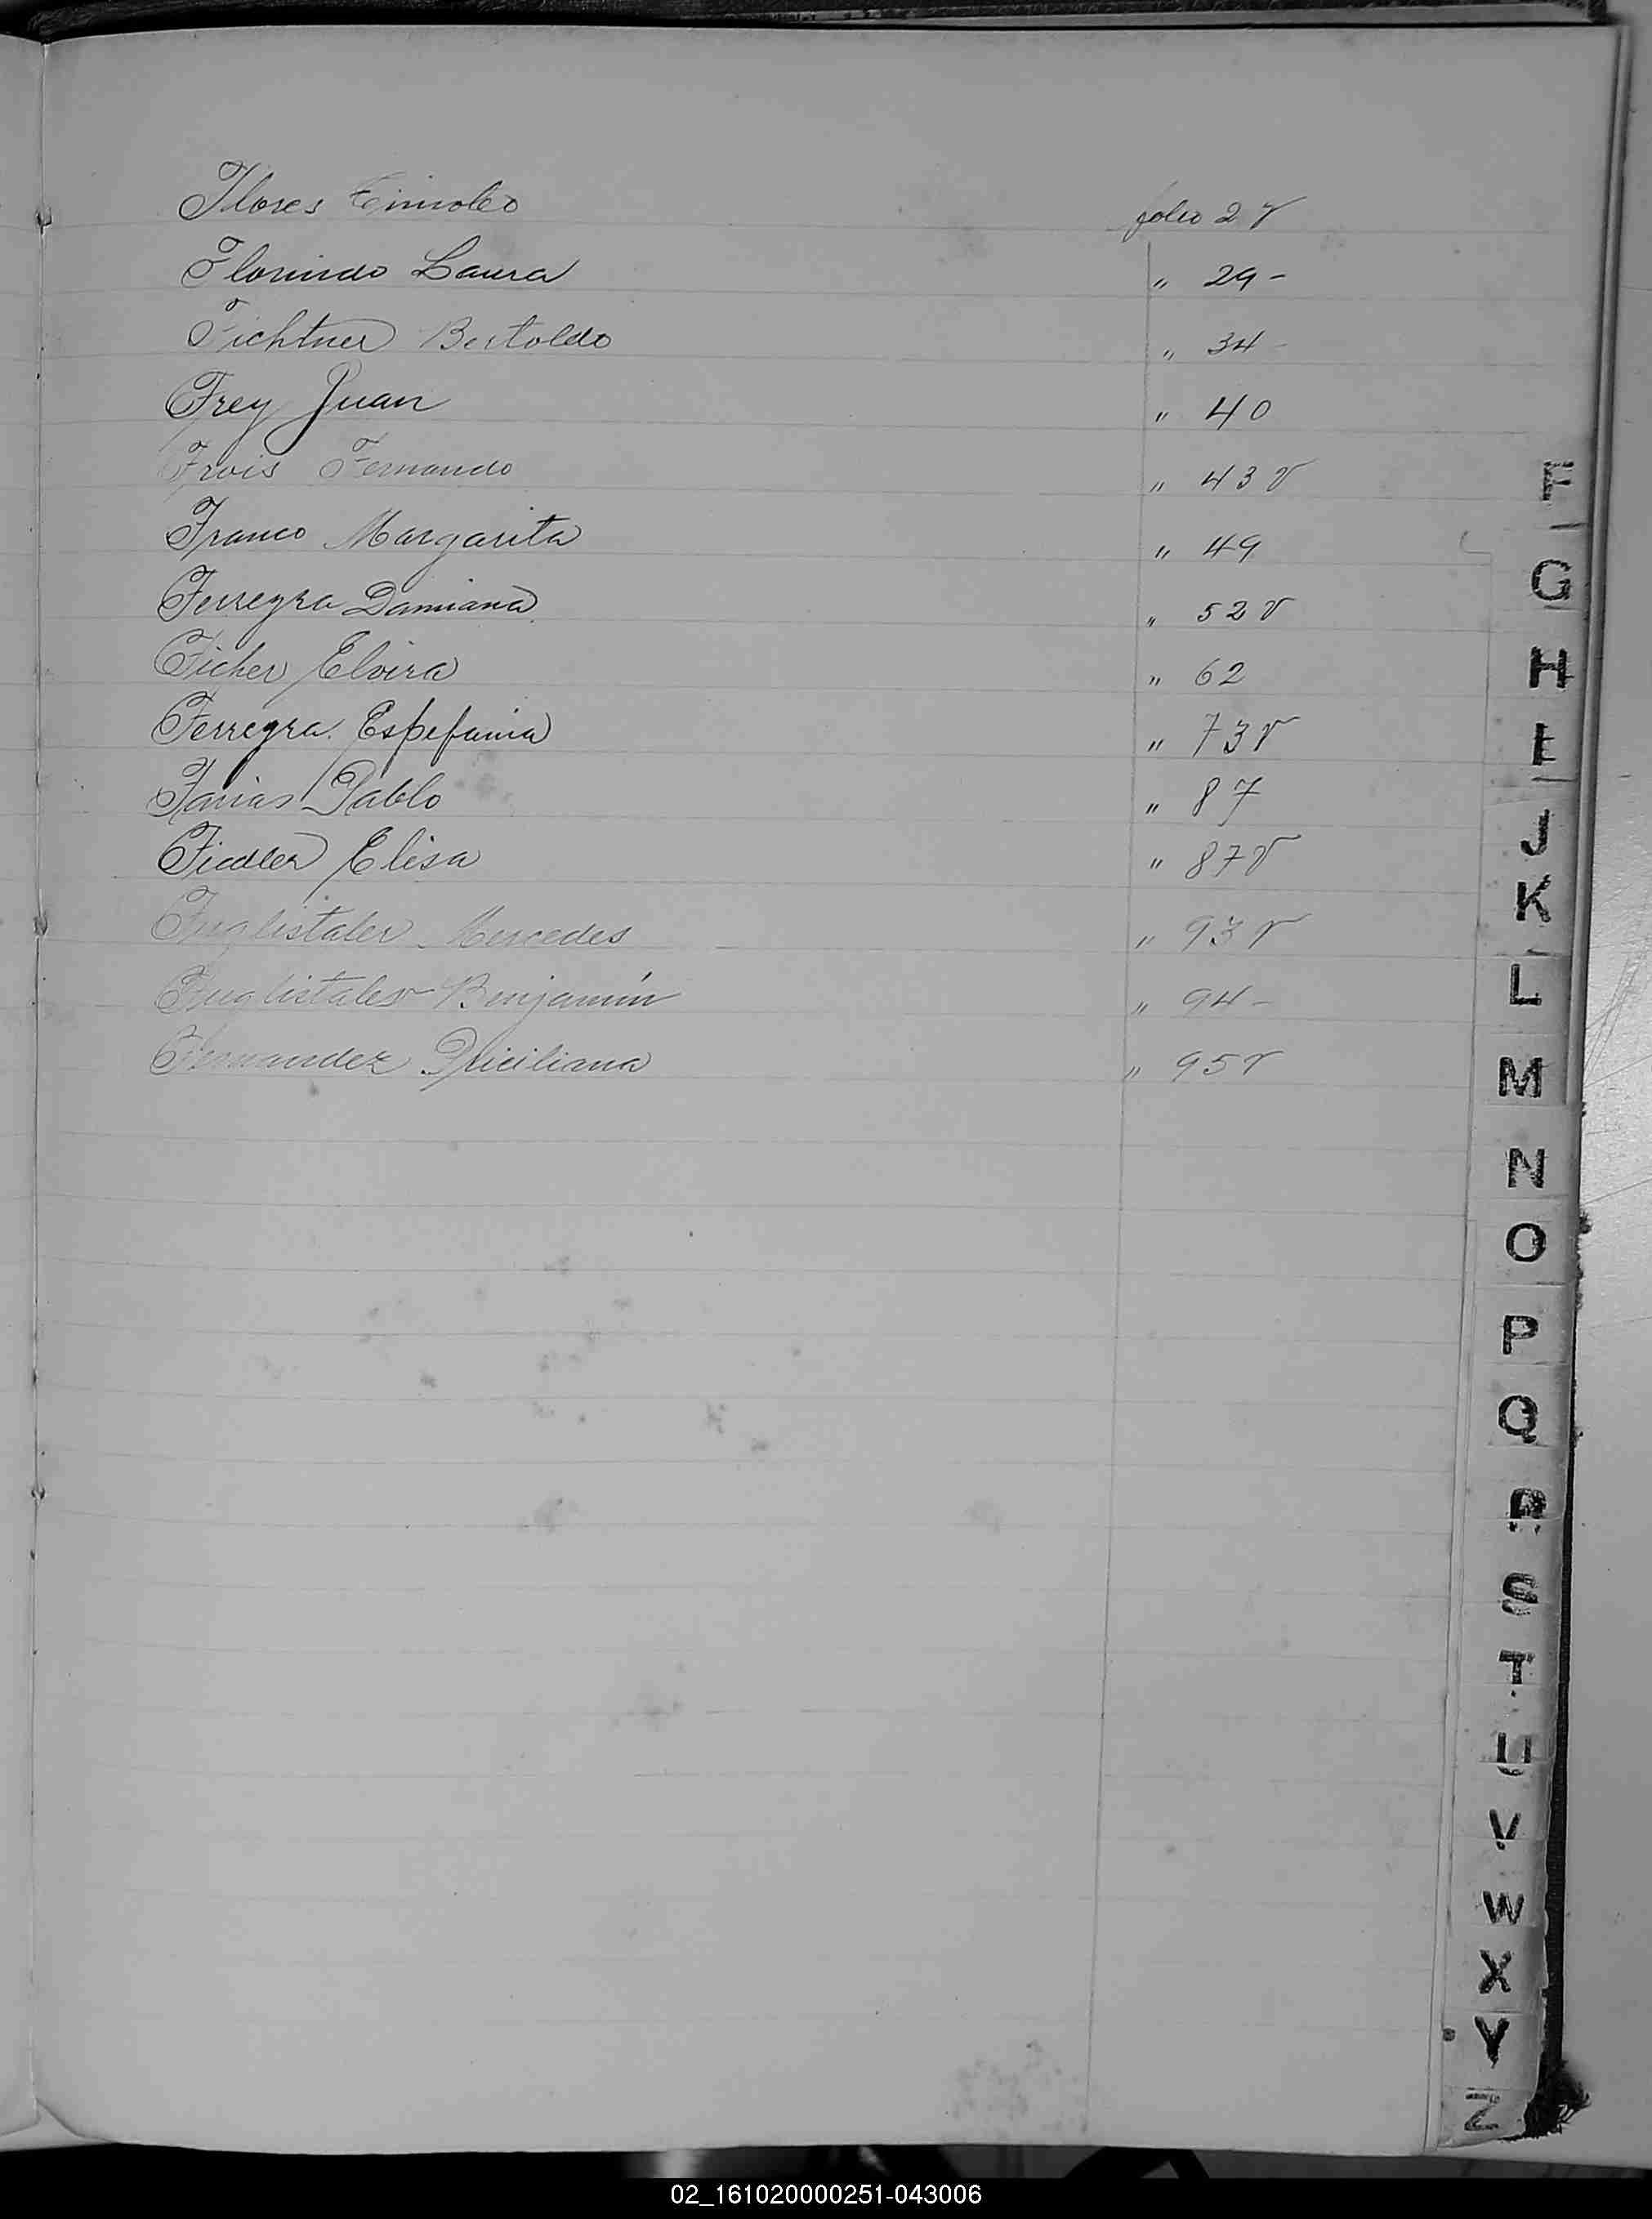 Flores Timoleo folio 2 v
Florindo Laura " 29 -
Fichtner Bertoldo " 34 -
Frey Juan " 40
Frois Fernando " 43 v
Franco Margarita " 49
Ferreyra Damiana " 52 v
Ficher Elvira " 62
Ferreyra Espefania " 73 v
Farias Pablo " 87
Fiedler Elisa " 87 v
Fuglistaler Mercedes " 93 v
Fuglistaler Benjamín " 94 -
Fernandez Priciliana " 95 v
F
G
H
I
J
K
L
M
N
O
P
Q
R
S
T
U
V
W
X
Y
Z
02_161020000251-043006